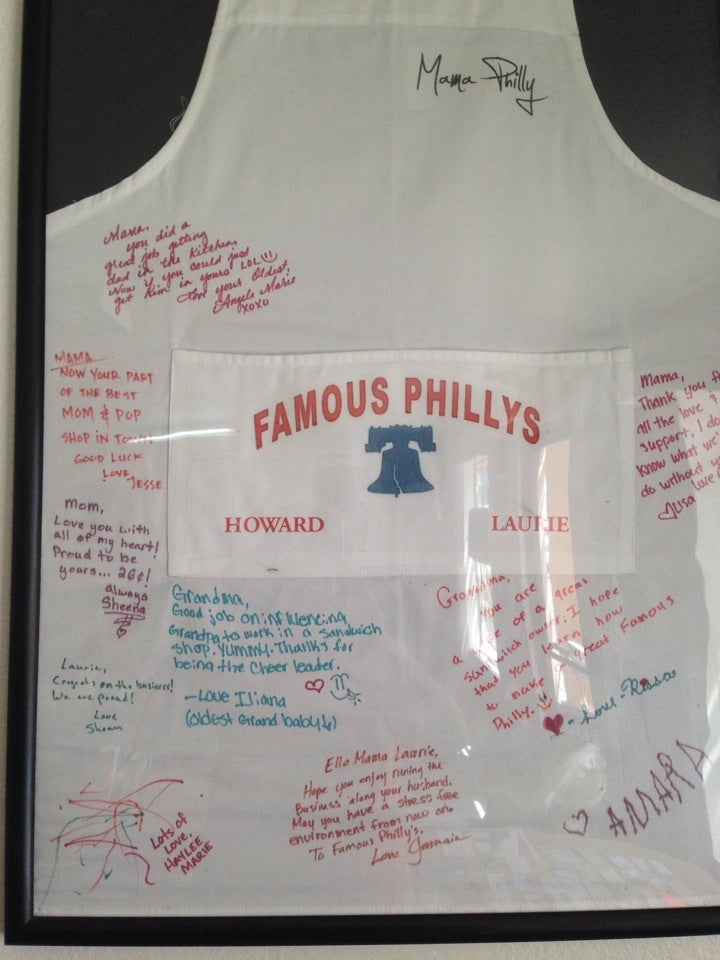 Mama Philly
Mama,
you did a
great job getting
dad in the kitchen,
Now if you could just
get Kim in yours LOL
Love your Oldest,
Angela Marie
XOXO
MAMA
NOW YOUR PART
OF THE BEST
MOM & POP
SHOP IN TOWN
GOOD LUCK
LOVE
JESSE
FAMOUS PHILLYS
HOWARD LAURIE
Mama,
Thank you f
all the love &
support, I do
know what we
do without y
Lisa
Mom,
Love you with
all of my heart!
Proud to be
yours... 26¢!
always
Sheena
Grandma,
Good job on influencing
Grandpa to work in a sandwich
shop. Yummy. Thanks for
being the Cheer leader.
-Love Iliana
(oldest Grand baby)
Grandma,
you are
a wife of a great
sandwich owner. I hope
that you learn how
to make a great Famous
Philly.
-Love-Rosa
Laurie,
Congrats on the business!
We are proud!
Love
Lots of
Love,
HAYLEE
MARIE
Ello Mama Laurie,
Hope you enjoy runing the
Business along your husband.
May you have a stress free
environment from now on.
To Famous Philly's.
Love Jermain
AMARA